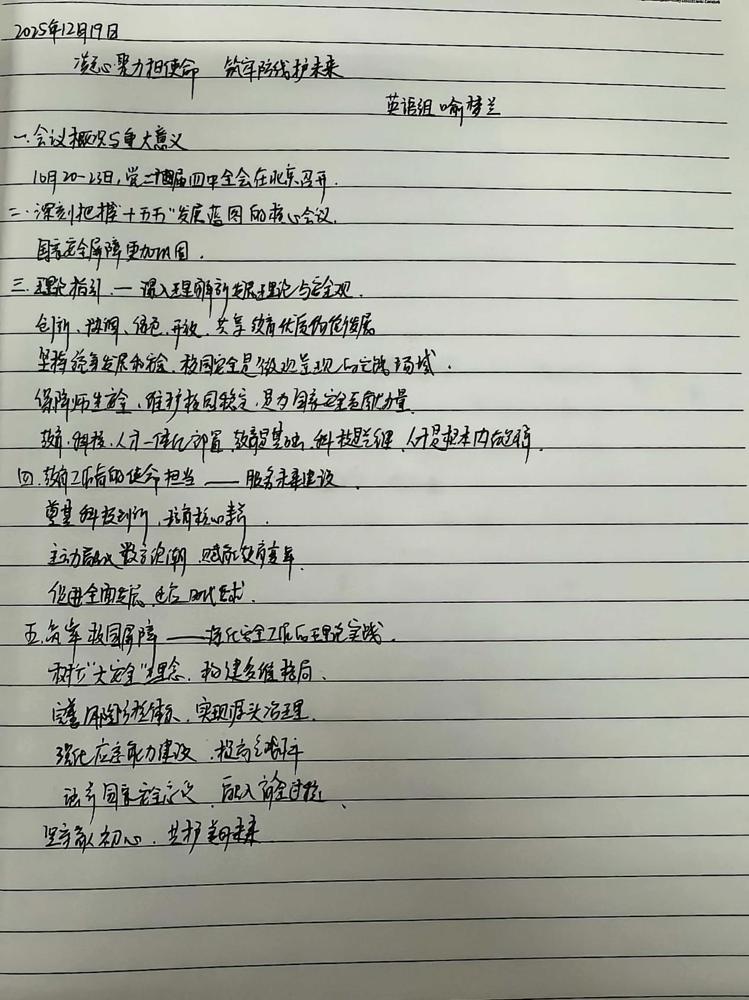 2025年12月19日
凝心聚力担使命 筑牢防线护未来
英语组 喻梦兰
一.会议概况与重大意义
10月20-23日,党二十届四中全会在北京召开.
二.深刻把握"十五五"发展蓝图的核心会议.
国家安全屏障更加巩固.
三.理论指引.—深入理解新发展理论与安全观.
创新、协调、绿色、开放、共享 教育优质
坚持统筹发展和安全,校园安全是微观呈现的实践场域.
保障师生安全,维护校园稳定,是为国家安全贡献力量.
教育.科技.人才一体化部署,教育是基础,科技是关键,人才是根本
四.教育工作者的使命担当——服务未来建设.
奠基科技创新,培育核心素养.
主动融入数字浪潮.赋能教育变革.
促进全面发展,适应时代要求.
五.筑牢校园屏障——深化安全工作的理论实践.
树立"大安全"理念.构建多维格局.
完善风险防控体系,实现源头治理.
强化应急能力建设,提高
培育国家安全意识,融入育全过程.
坚守育人初心.共护美好未来